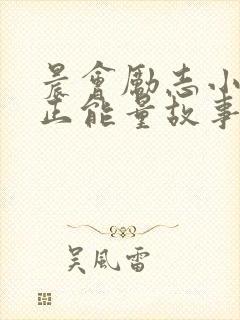 晨會勵志小
正能量故事
吴風雷